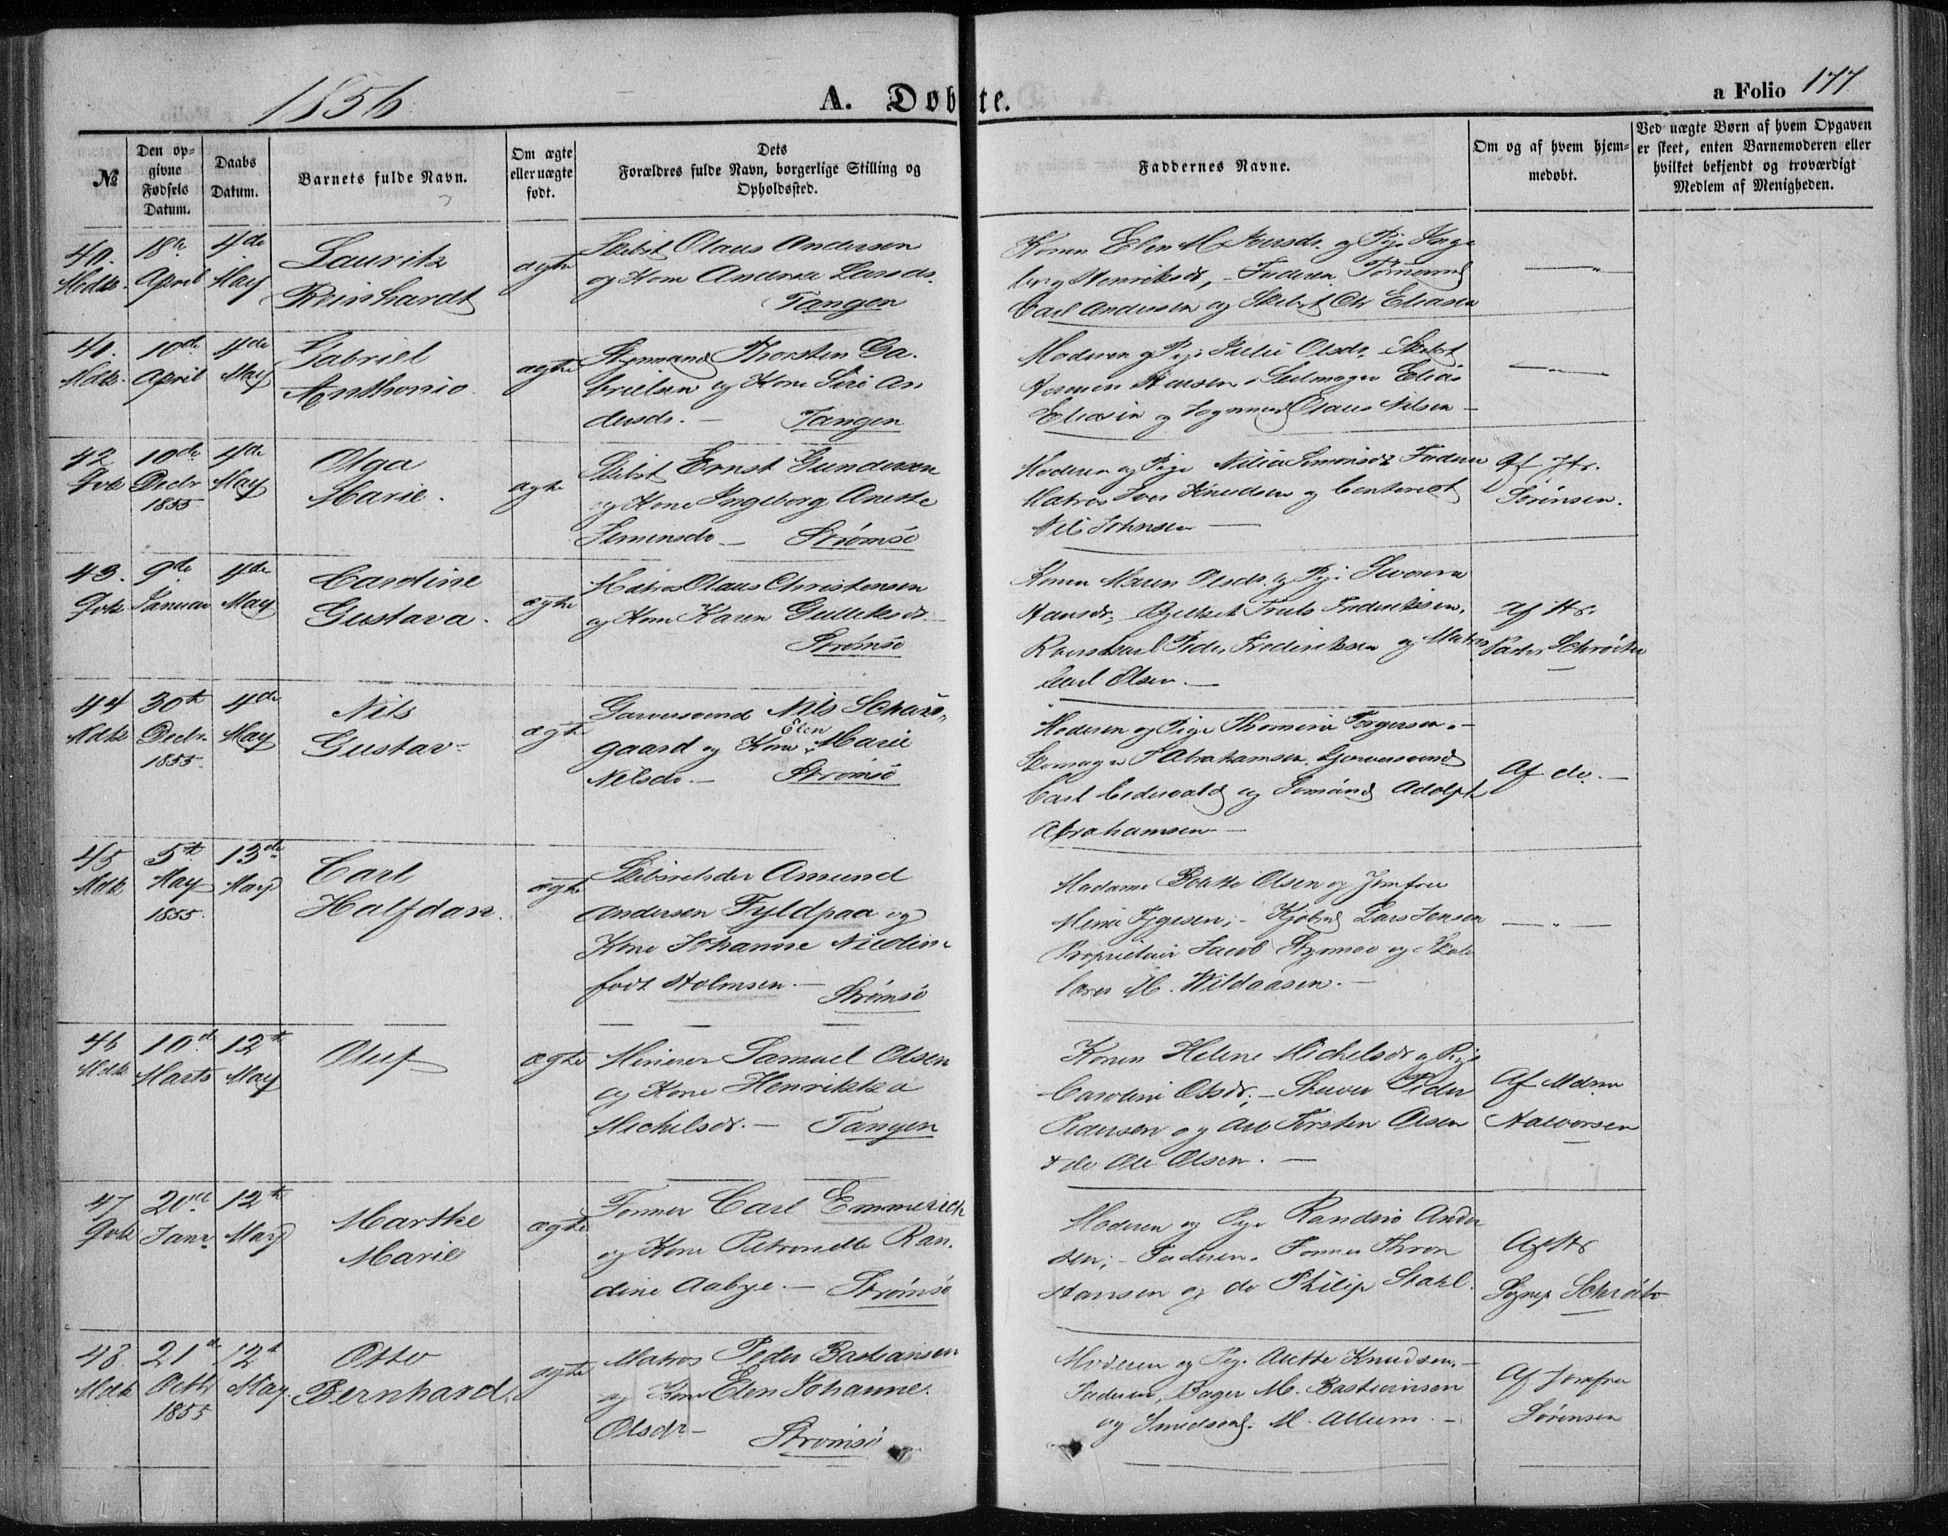 1856
A. Døbte.
a Folio 177
№
Den opgivne Fødsels Datum.
Daabs Datum.
Barnets fulde Navn.
Om ægte eller uægte født.
Dets Forældres fulde Navn, borgerlige Stilling og Opholdssted.
Faddernes Navne.
Om og af hvem hjemmedøbt.
Ved uægte Børn af hvem Opgaven er skeet, enten Barnemoderen eller hvilket bekjendt og troværdigt Medlem af Menigheden.
40. 18de 4de
Mdk. April May
Lauritz
Reinhardt
ægte
Skibst Olaus Andersen
og Kone Andrea Larsdr.
Tangen
Konen Elen M. Iversdr. og Pige Inge
borg Henriksdr, - Faderen,
Carl Andersen og Skibst Ole Eliasen
41. 10de 4de
Mdk. April May
Gabriel
Anthonio
ægte
Styrmand Thorsten Ga-
brielsen og Kone Siri An
dersdr. - Tangen
Moderen og Pige Julie Olsdr. Skibst
Hansen, Seilmager Elias
Eliasen og Olaus Nilsen -
42 10de 4de
Qvk Decbr May
1855
Olga
Marie.
ægte
Skibst Ernst Gundersen
og Kone Ingeborg Anette
Simensdr - Strømsø
Moderen og Pige Simonsdr Faderen
Matros Iver Knudsen og
Nils Johnsen -
Af Jfr.
Sørensen.
43. 9de 4de
Qvk Januar May
Caroline
Gustava.
ægte
Matros Olaus Christensen
og Kone Karen Gulliksdr.
Strømsø
Konen Maren Olsdr. og Pige
Hansdr, Truls Frederiksen,
Peder Frederiksen og Matros
Carl Olsen. -
Af Hr.
Schrøeter
44 30te 4de
Mdk Decbr. May
1855.
Nils
Gustav -
ægte
Garversvend Nils
gaard og Kone Elen Marie
Nilsdr. - Strømsø
Moderen og Pige Thomine Torgersen. -
Skomager Abrahamsen, Garversvend
Carl Cedervald og Adolph
Abrahamsen -
Af do. -
45 5te 13de
Mdk May May
1855.
Carl
Halfdan.
ægte
Skibsrheder Amund
Andersen Fyldpaa og
Kone Johanne Nicoline
født Holmsen. - Strømsø
Madame Olsen og Jomfru
Kjøbmd Lars Jensen
Proprietair Jacob og
M. Wildaasen. -
46 10de 12te
Mdk Marts May
Oluf
ægte
Minerer Samuel Olsen
og Kone Henrikka
Michelsdr. - Tangen
Konen Helene Michelsdr og Pige
Caroline Olsdr, - Peder
Pedersen og Arb Torsten Olsen
& do Ole Olsen. -
Af Mdm
Halvorsen
47 20de 12te
Qvk Janr. May
Marthe
Marie
ægte
Former Carl Emmerich
og Kone Petronelle Ran-
dine Aabye. - Strømsø
Moderen og Pige Randine Ander
sen, - Faderen. Former Thron
Hansen og do Philip Stahl.
Af Hr
Sognep Schrøeter
48 21de 12te
Mdk Octbr May.
1855
Otto
Bernhard.
ægte
Matros Peder Bastiansen
og Kone Elen Johanne
Olsdr - Strømsø
Moderen og Pige Anthe Knudsen, -
Faderen, Bager M. Bastiansen
og Smedsvd. M. Allum. -
Af Jomfru
Sørensen